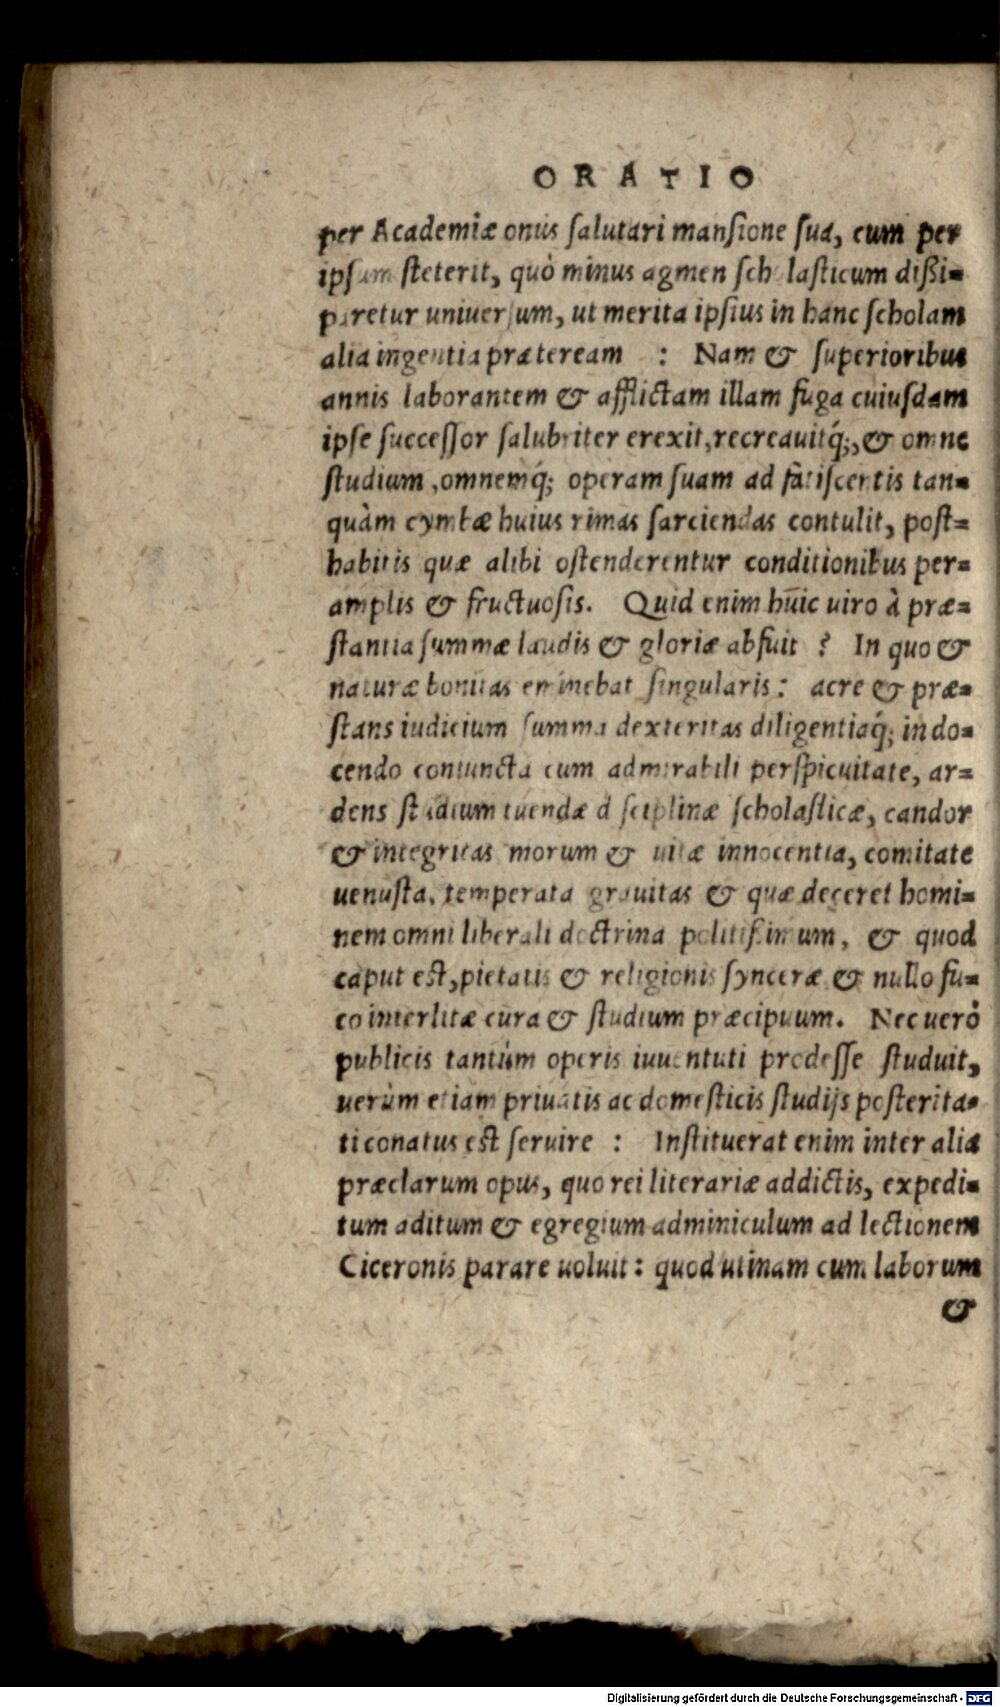 ORATIO
per Academiæ onus salutari mansione sua, cum per
ipsum steterit, quò minus agmen scholasticum dißi-
paretur uniuersum, ut merita ipsius in hanc scholam
alia ingentia præteream : Nam & superioribus
annis laborantem & afflictam illam fuga cuiusdam
ipse successor salubriter erexit, recreauitq́;, & omne
studium, omnemq́; operam suam ad fatiscentis tan-
quàm cymbæ huius rimas sarciendas contulit, post-
habitis quæ alibi ostenderentur conditionibus per-
amplis & fructuosis. Quid enim huic uiro à præ-
stantia summæ laudis & gloriæ abfuit ? In quo &
naturæ bonitas eminebat singularis : acre & præ-
stans iudicium summa dexteritas diligentiaq́; in do-
cendo coniuncta cum admirabili perspicuitate, ar-
dens studium tuendæ disciplinæ scholasticæ, candor
& integritas morum & uitæ innocentia, comitate
uenusta, temperata grauitas & quæ deceret homi-
nem omni liberali doctrina politißimum, & quod
caput est, pietatis & religionis synceræ & nullo fu-
co interlitæ cura & studium præcipuum. Nec uerò
publicis tantùm operis iuuentuti prodesse studuit,
uerùm etiam priuatis ac domesticis studijs posterita-
ti conatus est seruire : Instituerat enim inter alia
præclarum opus, quo rei literariæ addictis, expedi-
tum aditum & egregium adminiculum ad lectionem
Ciceronis parare uoluit : quod utinam cum laborum
&
Digitalisierung gefördert durch die Deutsche Forschungsgemeinschaft - DFG